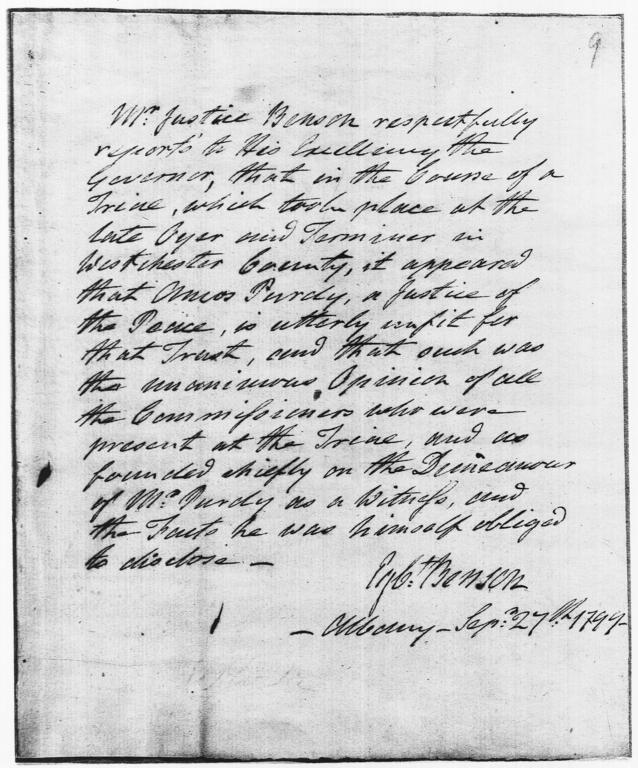 9
Mr. Justice Benson respectfully
reports to His Excellency the
Governor, that in the Course of a
Trial, which took place at the
late Oyer and Terminer in
Westchester County, it appeared
that Amos Purdy, a Justice of
the Peace, is utterly unfit for
that Trust, and that such was
the unanimous Opinion of all
the Commissioners who were
present at the Trial, and as
founded chiefly on the Demeanour
of Mr. Purdy as a Witness, and
the Facts he was himself obliged
to disclose —
Egbt. Benson
— Albany — Sepr. 27th. 1799 —